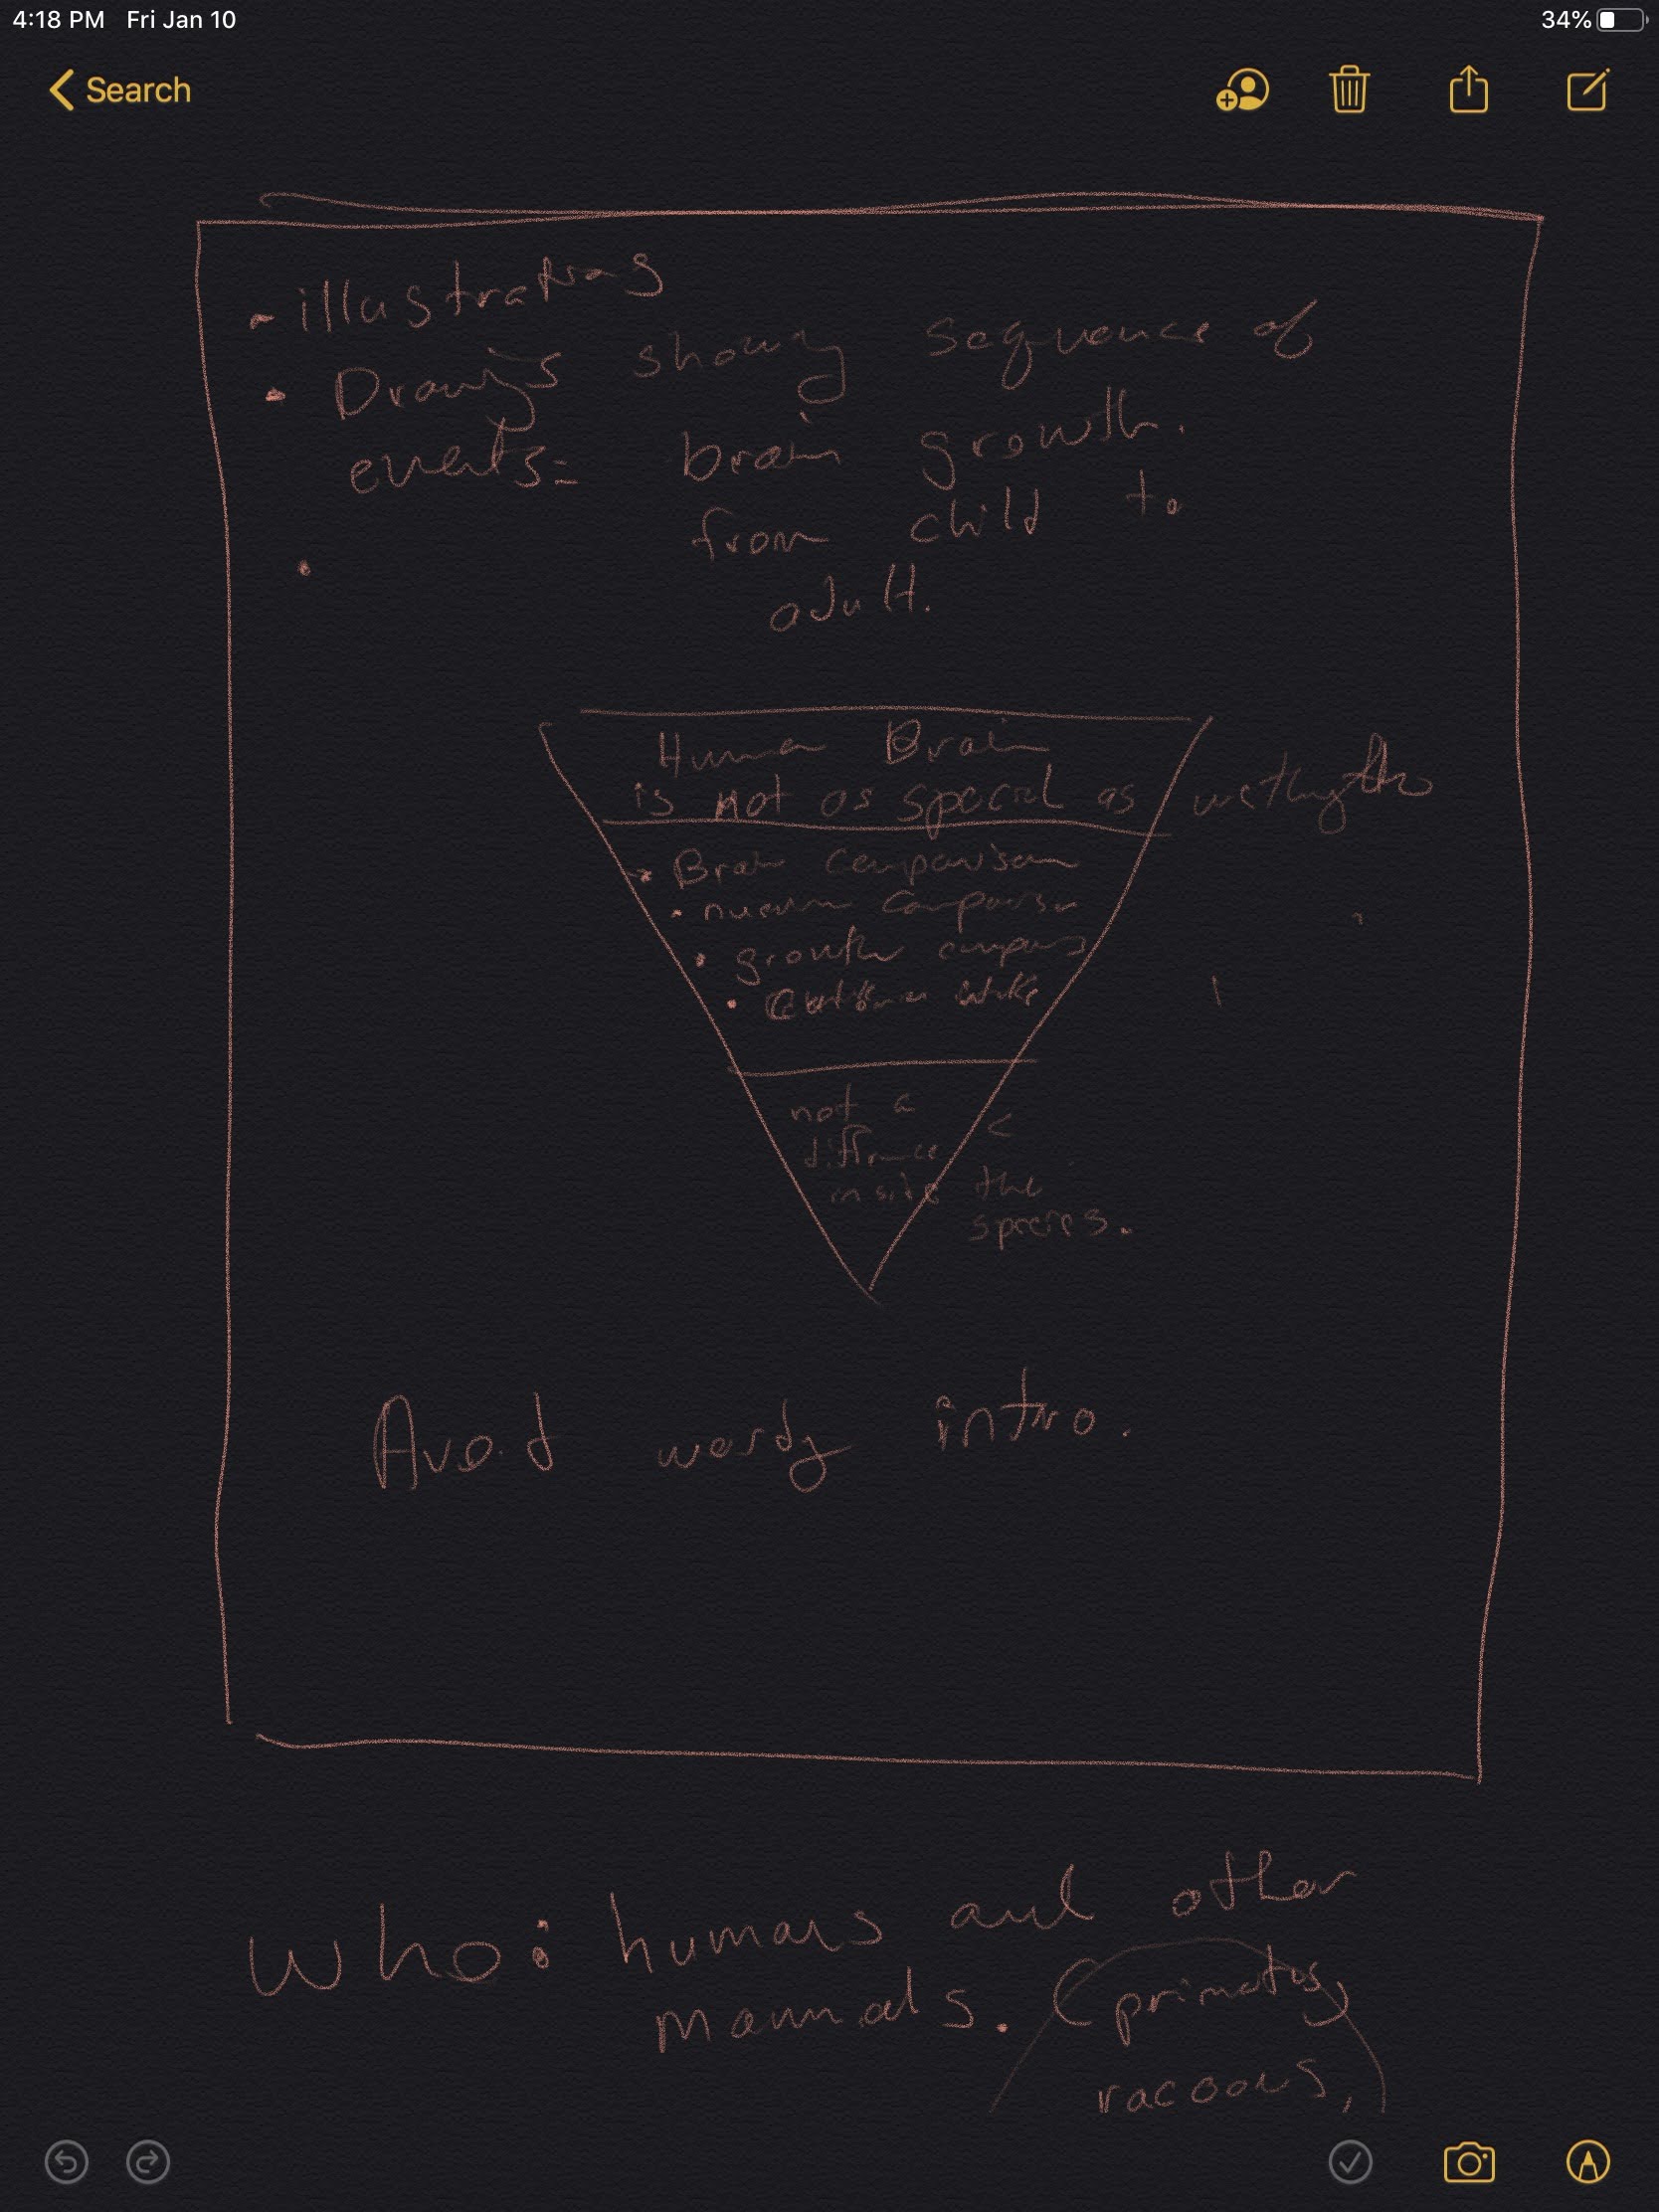 4:18 PM Fri Jan 10 34%
Search
- illustrations
• Drawings showing sequence of
events= brain growth.
from child to
adult.
•
Human Brain
is not as special as
→ Brain Comparison
• Comparison
• growth
•
not a
difference
inside the
species.
Avoid wordy intro.
Who: humans and other
mammals. (primates,
racoons,